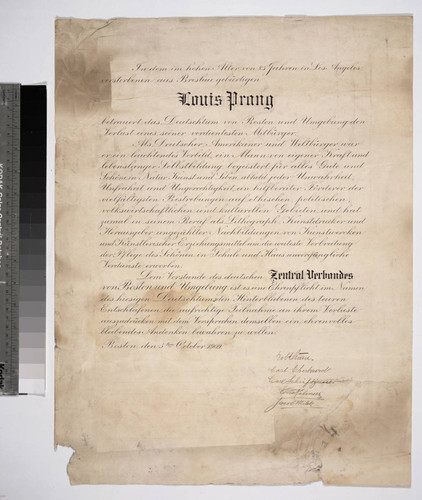 In dem im hohen Alter von 85 Jahren in Los Angeles
verstorbenen aus Breslau gebürtigen
Louis Prang
betrauert das Deutschtum von Boston und Umgebung den
Verlust eines seiner verdientesten Mitbürger.
Als Deutscher, Amerikaner und Weltbürger war
er ein leuchtendes Vorbild, ein Mann von eigener Kraft und
lebenslanger Selbstbildung, begeistert für alles Gute und
Schöne in Natur, Kunst und Leben, abhold jeder Unwahrheit,
Unfreiheit und Ungerechtigkeit, ein hilfbereiter Förderer der
vielfältigsten Bestrebungen auf ethischen, politischen,
volkswirtschaftlichen und kulturellen Gebieten, und hat
zumal in seinem Beruf als Lithograph, Kunstdrucker und
Herausgeber ungezählter Nachbildungen von Kunstwerken
und Künstlerischer Erziehungsmittel um die weiteste Verbreitung
der Pflege des Schönen in Schule und Haus unvergängliche
Verdienste erworben.
Dem Vorstande des deutschen Zentral Verbandes
von Boston und Umgebung ist es eine Ehrenpflicht im Namen
des hiesigen Deutschtums den Hinterbliebenen des teuren
Entschlafenen die aufrichtige Teilnahme an ihrem Verluste
auszudrücken mit dem Versprechen demselben ein ehrenvolles
bleibendes Andenken bewahren zu wollen.
Boston, den 5ten October 1909.
Carl Eberhard
Kodak